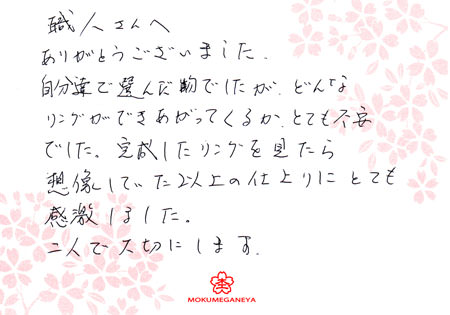 職人さんへ
ありがとうございました.
自分達で選んだ物でしたが、どんな
リングができあがってくるか、とても不安
でした。完成したリングを見たら
想像していた以上の仕上りにとても
感激しました。
二人で大切にします.
MOKUMEGANEYA